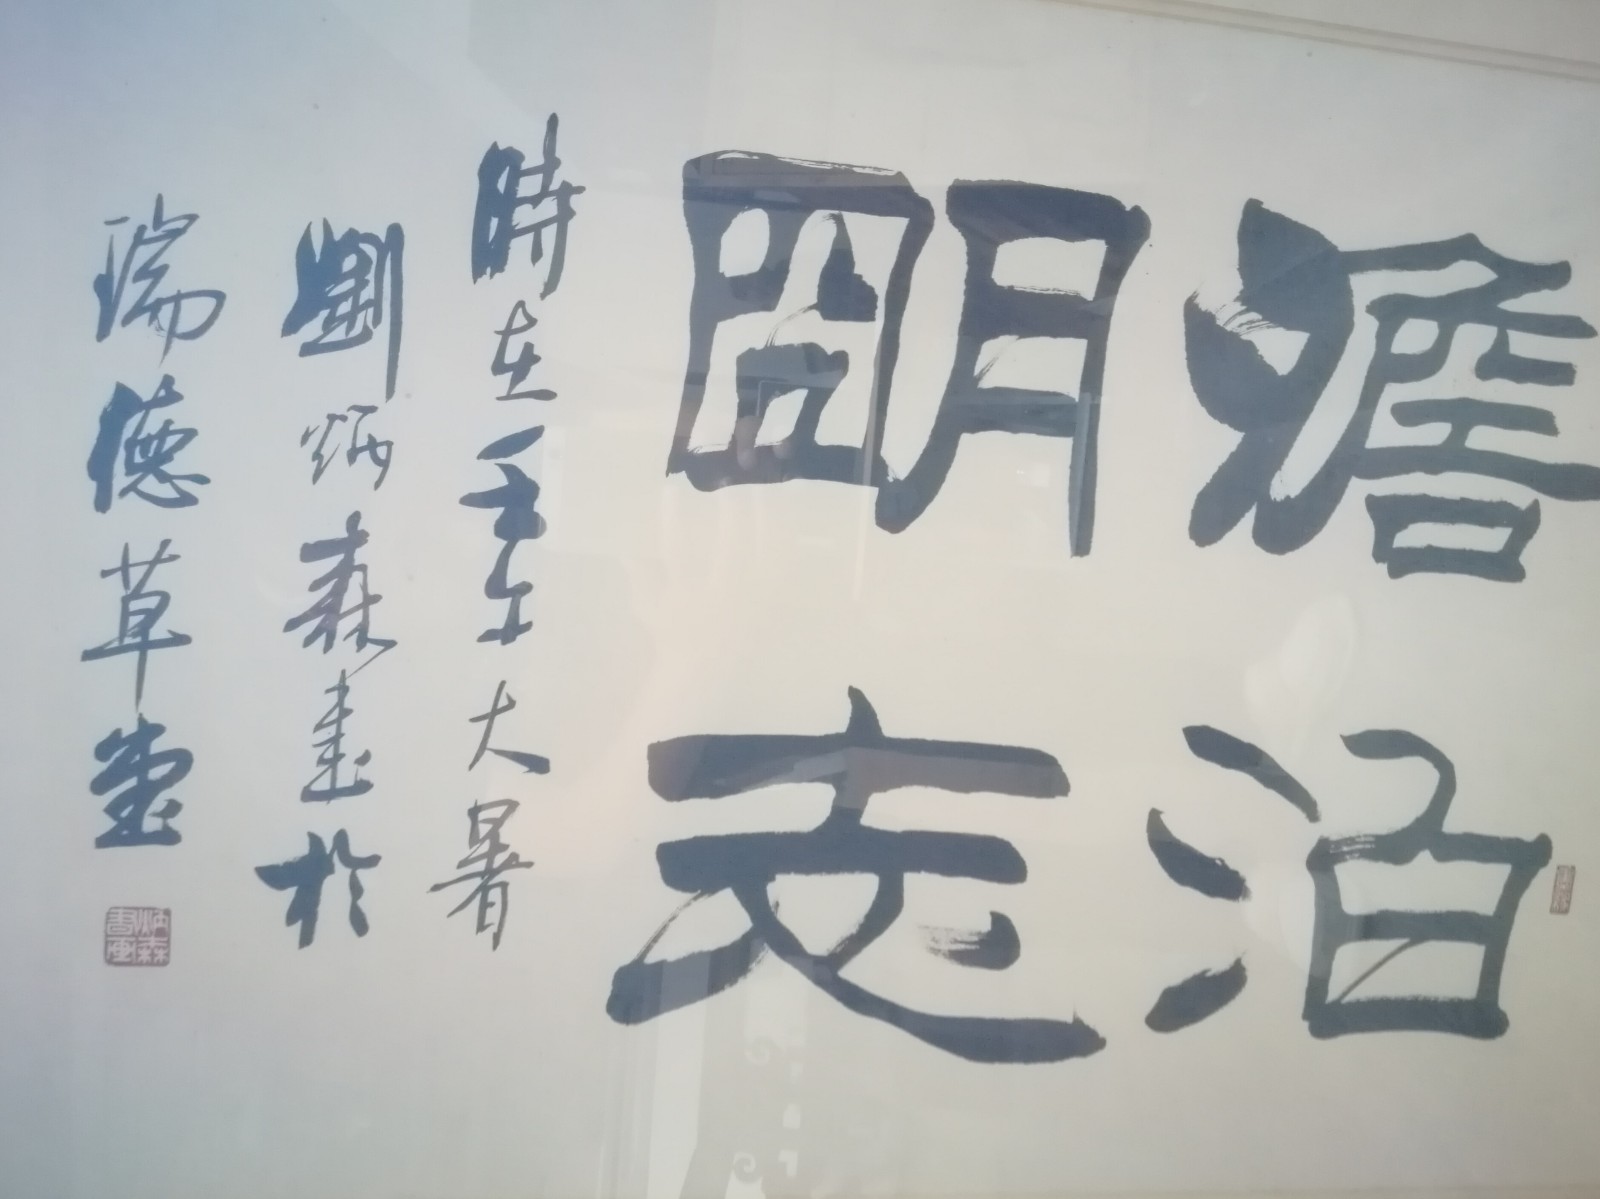 澹泊
朙志
時在壬午大暑
劉炳森書於
瑞德草堂
炳森